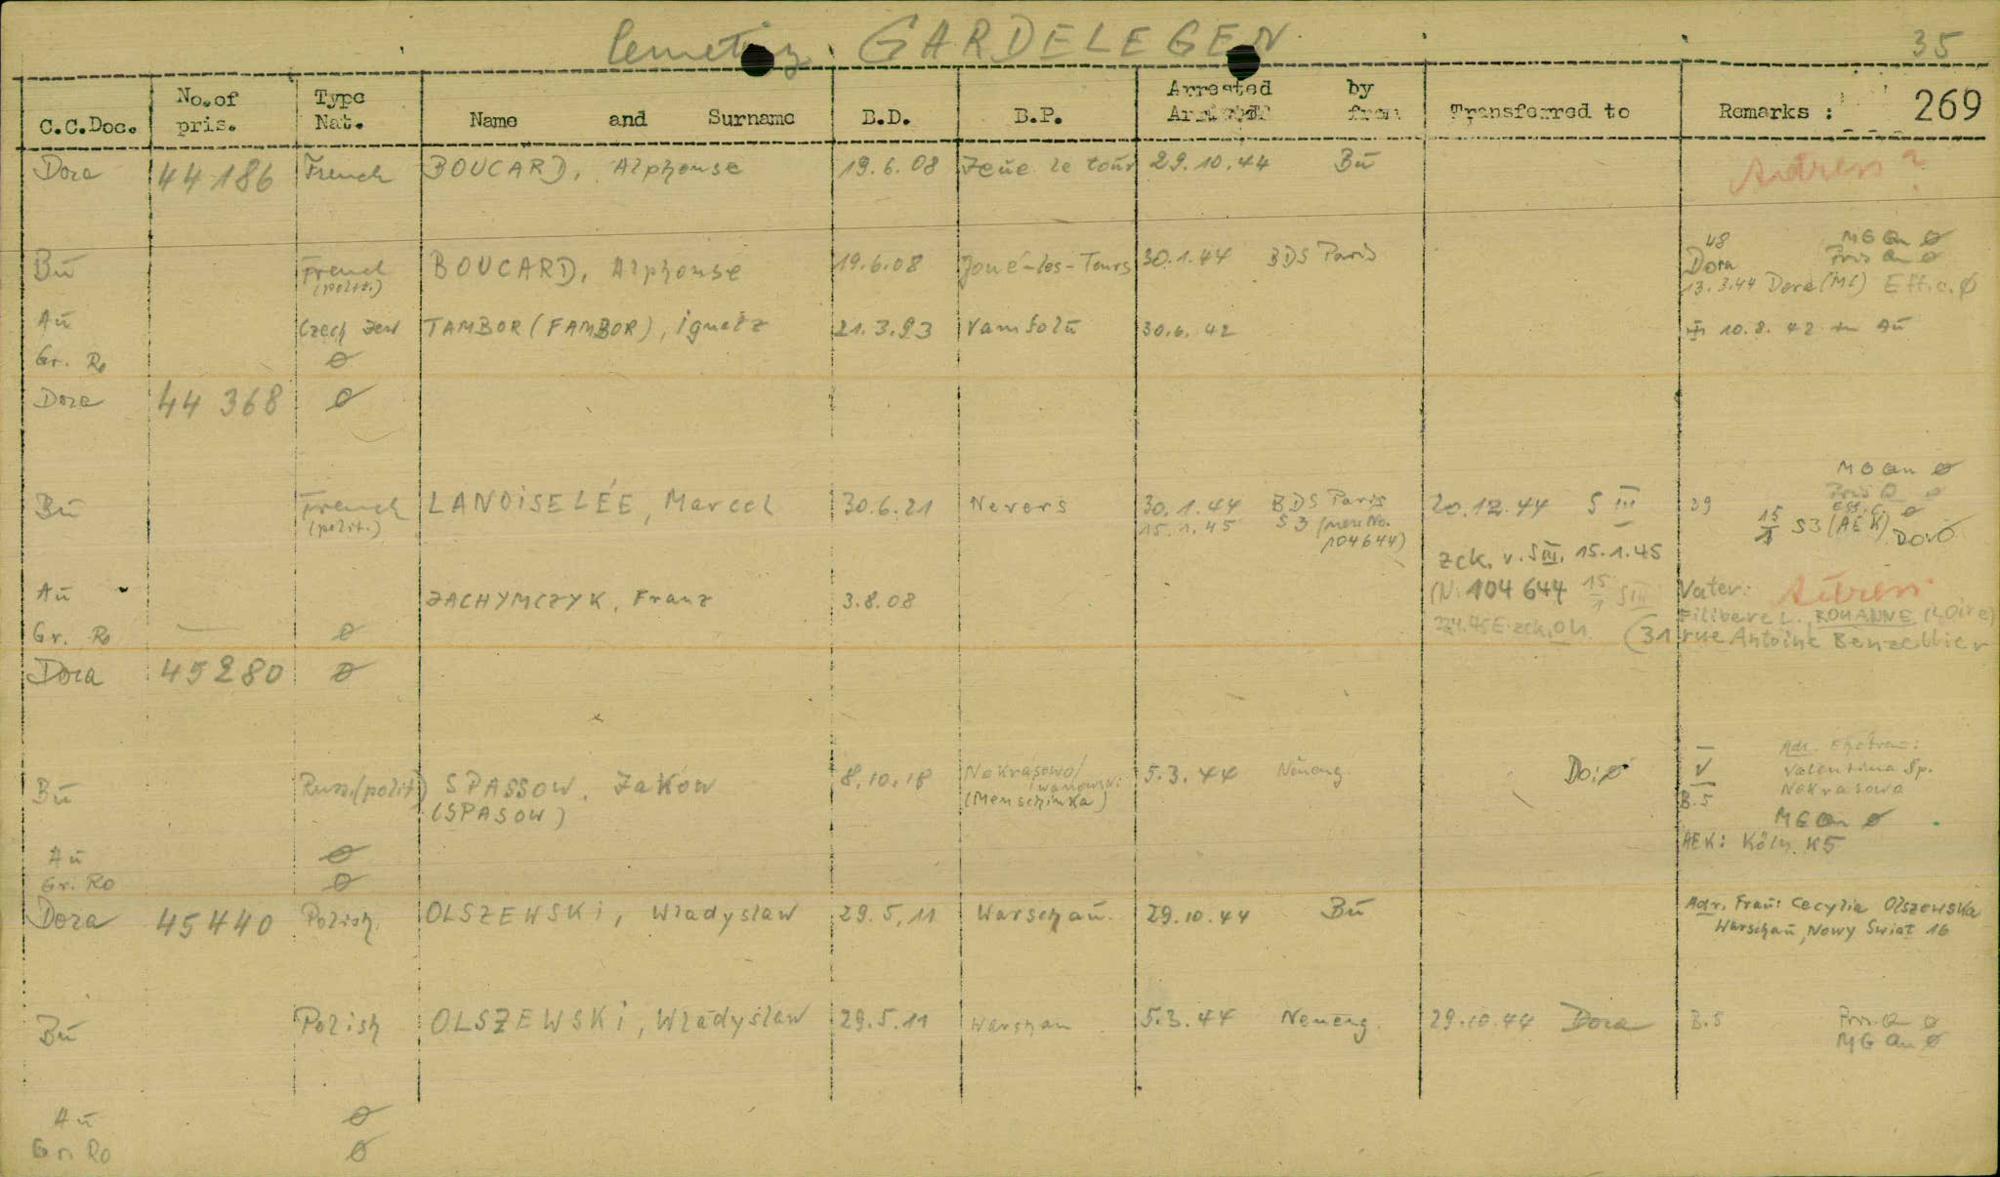 Cemetery GARDELEGEN 35
C.C.Doc. No. of pris. Type Nat. Name and Surname B.D. B.P. Arrested by Transferred to Remarks : 269
Dora 44 186 French BOUCARD, Alphonse 19.6.08 29.10.44 Bu Adress ?
Bu French (polit.) BOUCARD, Alphonse 19.6.08 Joué-les-Tours 30.1.44 BDS Paris 48 Dora MG Qu Ø
13.3.44 Dora (MG) Effic. Ø
Au Czech Jew TAMBOR (FAMBOR), Ignatz 21.3.93 30.6.42 10.8.42 in Au
Gr. Ro Ø
Dora 44 368 Ø
MG Qu Ø
Bu French (polit.) LANOISELÉE, Marcel 30.6.21 Nevers 30.1.44 BDS Paris 20.12.44 S III 39
15.1.45 S3 (neue No. 104644) 15/1 S3 (AEK) Do:Ø
zck. v. SIII. 15.1.45
Au ZACHYMCZYK, Franz 3.8.08 (N. 104 644 15/1 SIII Vater: Adress
Gr. Ro — Ø Filibere L. ROHANNE (Loire)
(31 rue Antoine Benzellier
Dora 45280 Ø
Bu Russ. (polit) SPASSOW, Jakow 8.10.18 Nekrasowo/ 5.3.44 Neueng. Do:Ø V
(SPASOW) (Menschinka) B.5
Valentina Sp.
Nekrasowa
MG Qu Ø
Au Ø AEK: Köln. K5
Gr. Ro Ø
Dora 45440 Polish OLSZEWSKI, Wladyslaw 29.5.11 Warschau. 29.10.44 Bu Adr. Frau: Cecylia Olszewska
Warschau, Nowy Swiat 16
Bu Polish OLSZEWSKI, Wladyslaw 29.5.11 Warschau 5.3.44 Neueng. 29.10.44 Dora B.5
MG Qu Ø
Au Ø
Gr. Ro Ø